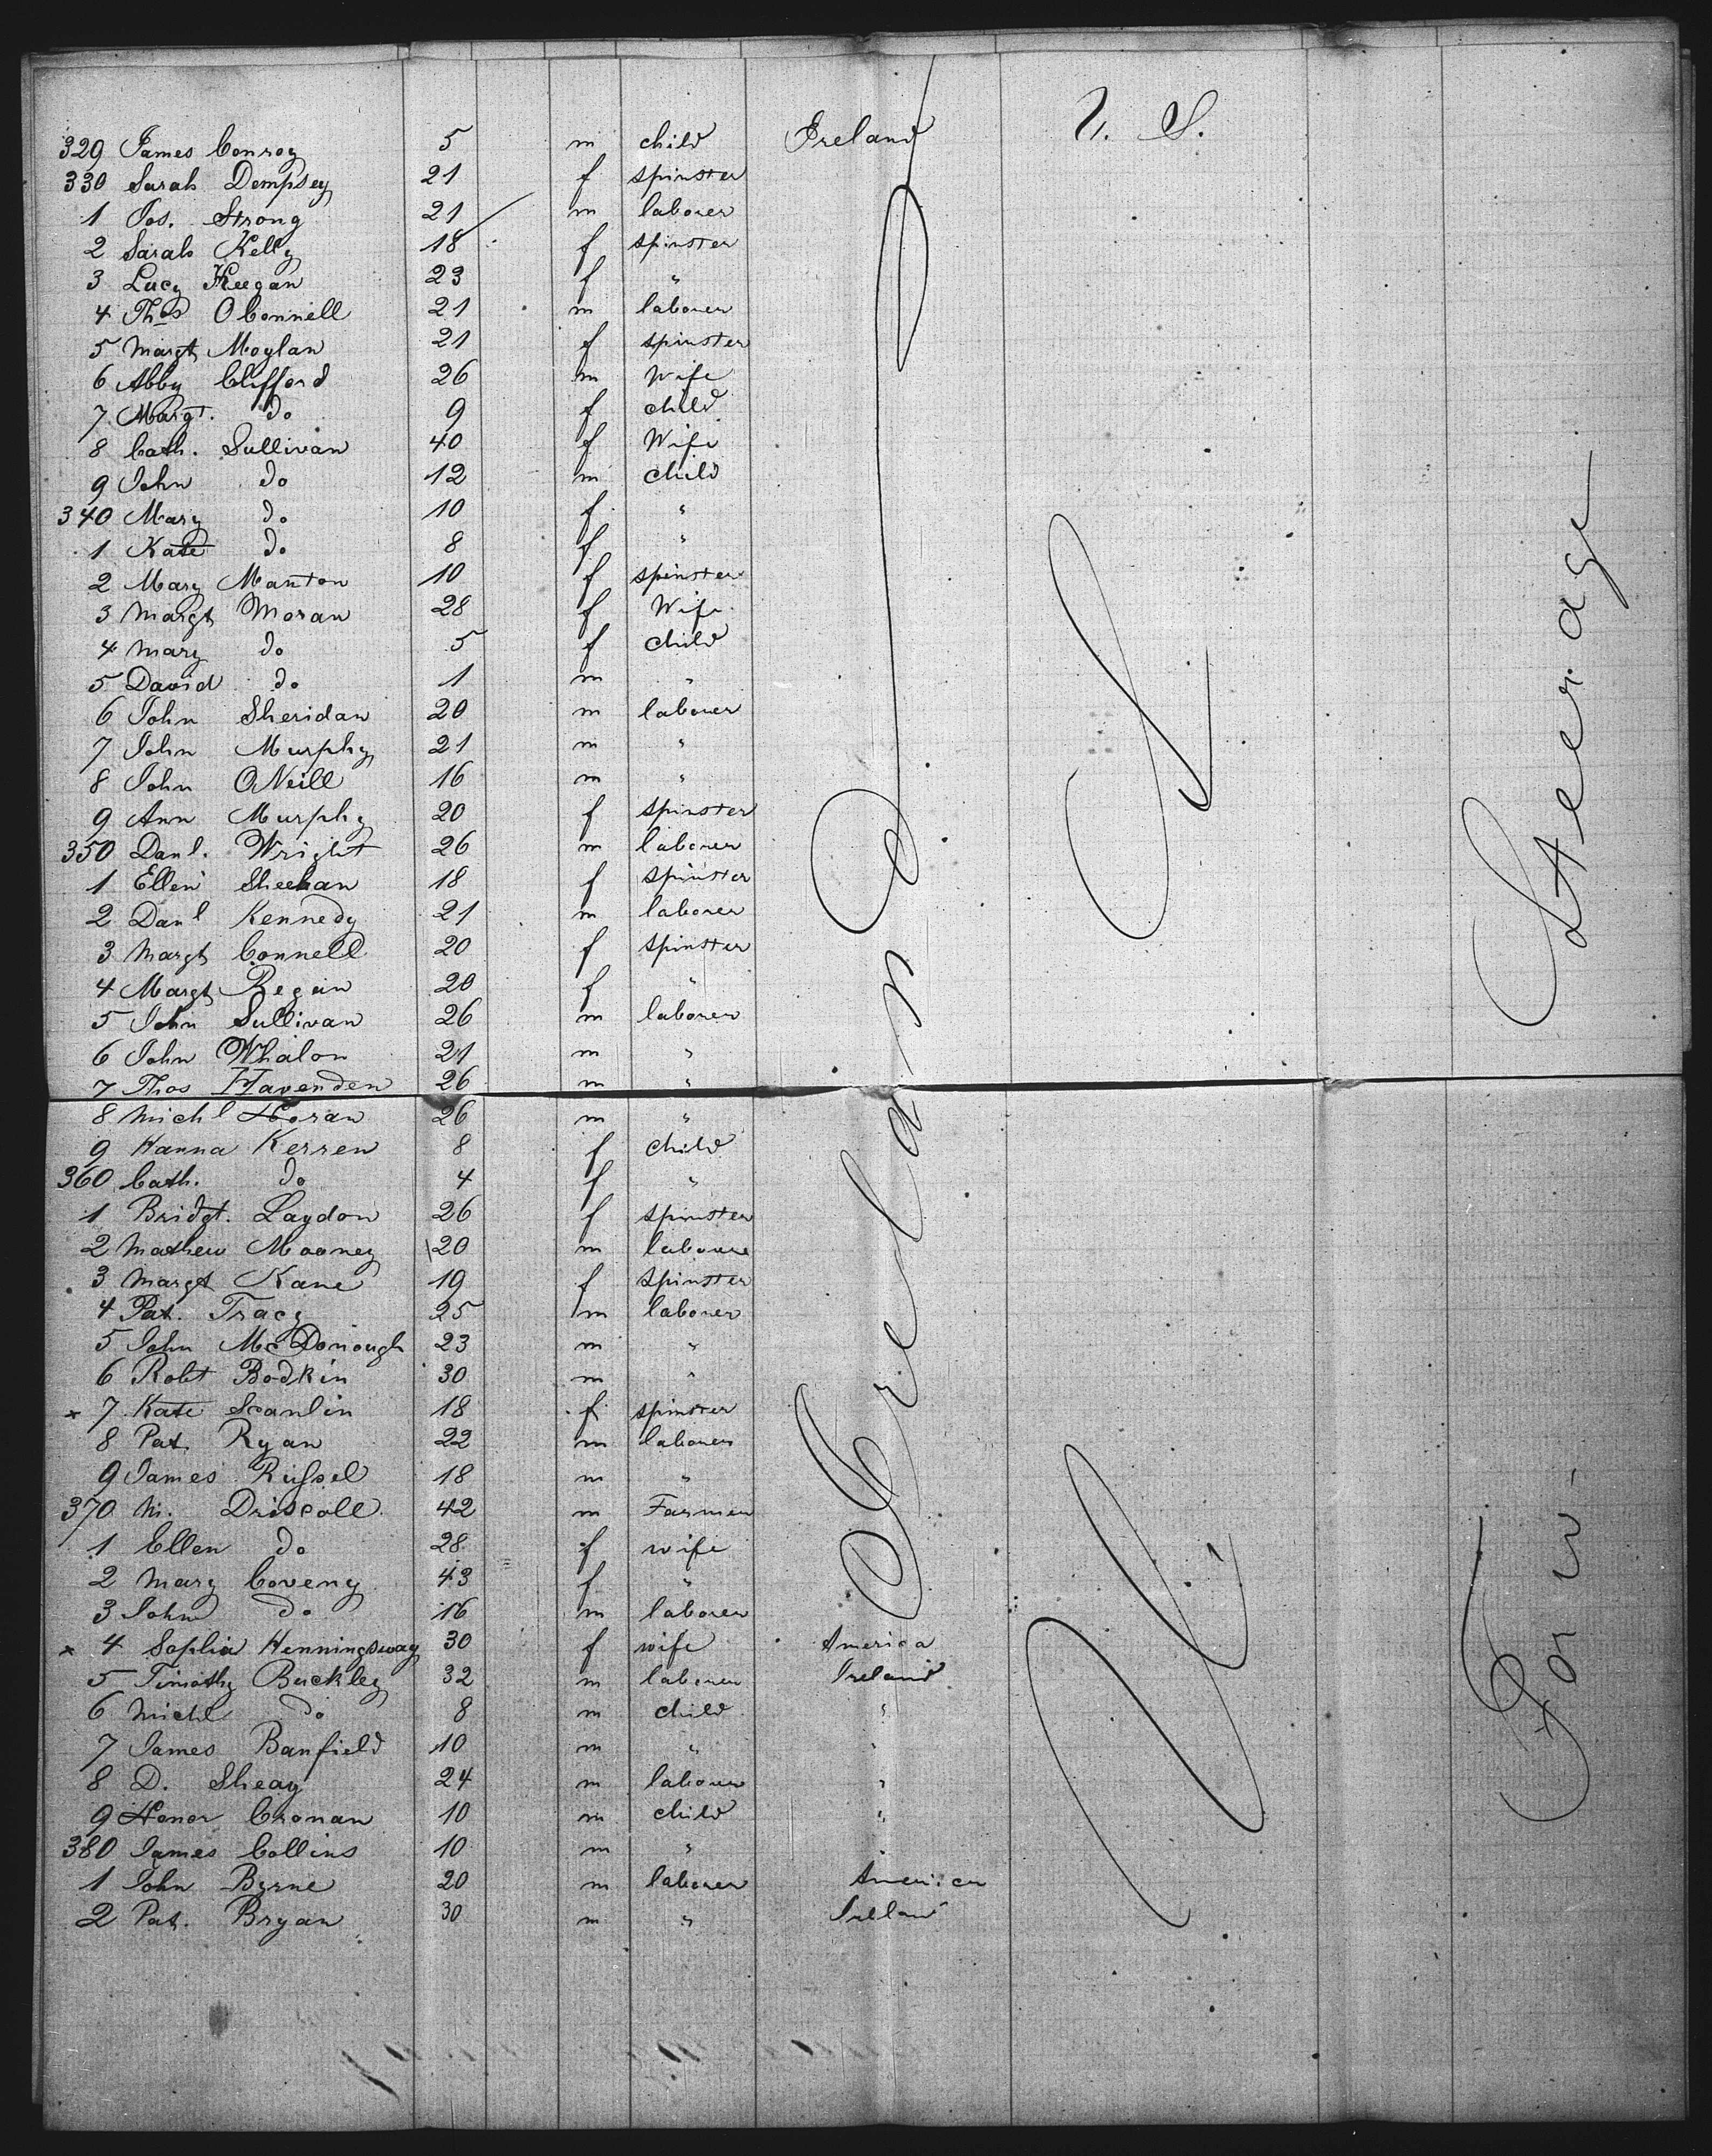 329 James Conroy 5 m child Ireland U. S.
330 Sarah Dempsey 21 f spinster
1 Jos. Strong 21 m laborer
2 Sarah Kelly 18 f spinster
3 Lucy Keegan 23 f "
4 Thos OConnell 21 m laborer
5 Margt Moylan 21 f spinster
6 Abby Clifford 26 m Wife
7 Margt. do 9 f child
8 Cath. Sullivan 40 f Wife
9 John do 12 m child
340 Mary do 10 f "
1 Kate do 8 f "
2 Mary Manton 10 f spinster
3 Margt Moran 28 f Wife
4 Mary do 5 f child
5 David do 1 m "
6 John Sheridan 20 m laborer
7 John Murphy 21 m "
8 John ONeill 16 m "
9 Ann Murphy 20 f spinster
350 Danl. Wright 26 m laborer
1 Ellen Sheehan 18 f spinster
2 Danl Kennedy 21 m laborer
3 Margt Connell 20 f spinster
4 Margt Regan 20 f "
5 John Sullivan 26 m laborer
6 John Whalon 21 m "
7 Thos Havenden 26 m "
8 Michl Horan 26 m "
9 Hanna Kerren 8 f child
360 Cath. do 4 f "
1 Bridgt. Laydon 26 f spinster
2 Mathew Mooney 20 m laborer
3 Margt Kane 19 f spinster
4 Pat. Tracy 25 m laborer
5 John McDonough 23 m "
6 Robt Bodkin 30 m "
x 7 Kate Scanlin 18 f spinster
8 Pat. Ryan 22 m laborer
9 James Russel 18 m "
370 M. Driscoll 42 m Farmer
1 Ellen do 28 f wife
2 Mary Coveny 43 f "
3 John do 16 m laborer
x 4 Sophia Henningsway 30 f wife America
5 Timothy Buckley 32 m laborer Ireland
6 Michl do 8 m child "
7 James Banfield 10 m " "
8 D. Sheay 24 m laborer "
9 Honor Cronan 10 m child "
380 James Collins 10 m " "
1 John Byrne 20 m laborer America
2 Pat. Bryan 30 m " Ireland
Ireland
U S
Forw. Steerage